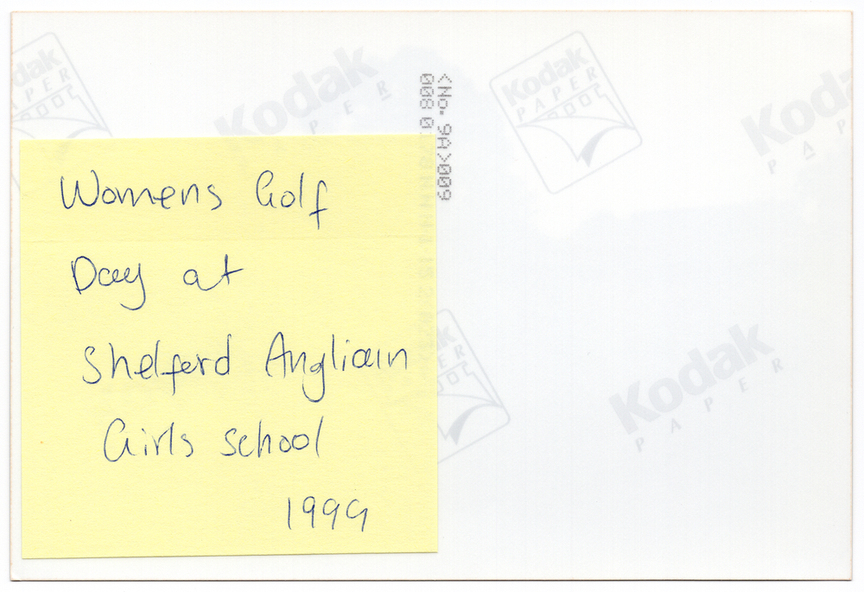 Womens Golf
Day at
Shelferd Angliain
Girls school
1999
<No. 9A>009
008 0
Kodak
PAPER
Kodak
PAPER
Kodak
PAPER
Kodak
PAPER
Kodak
PAPER
PAPER